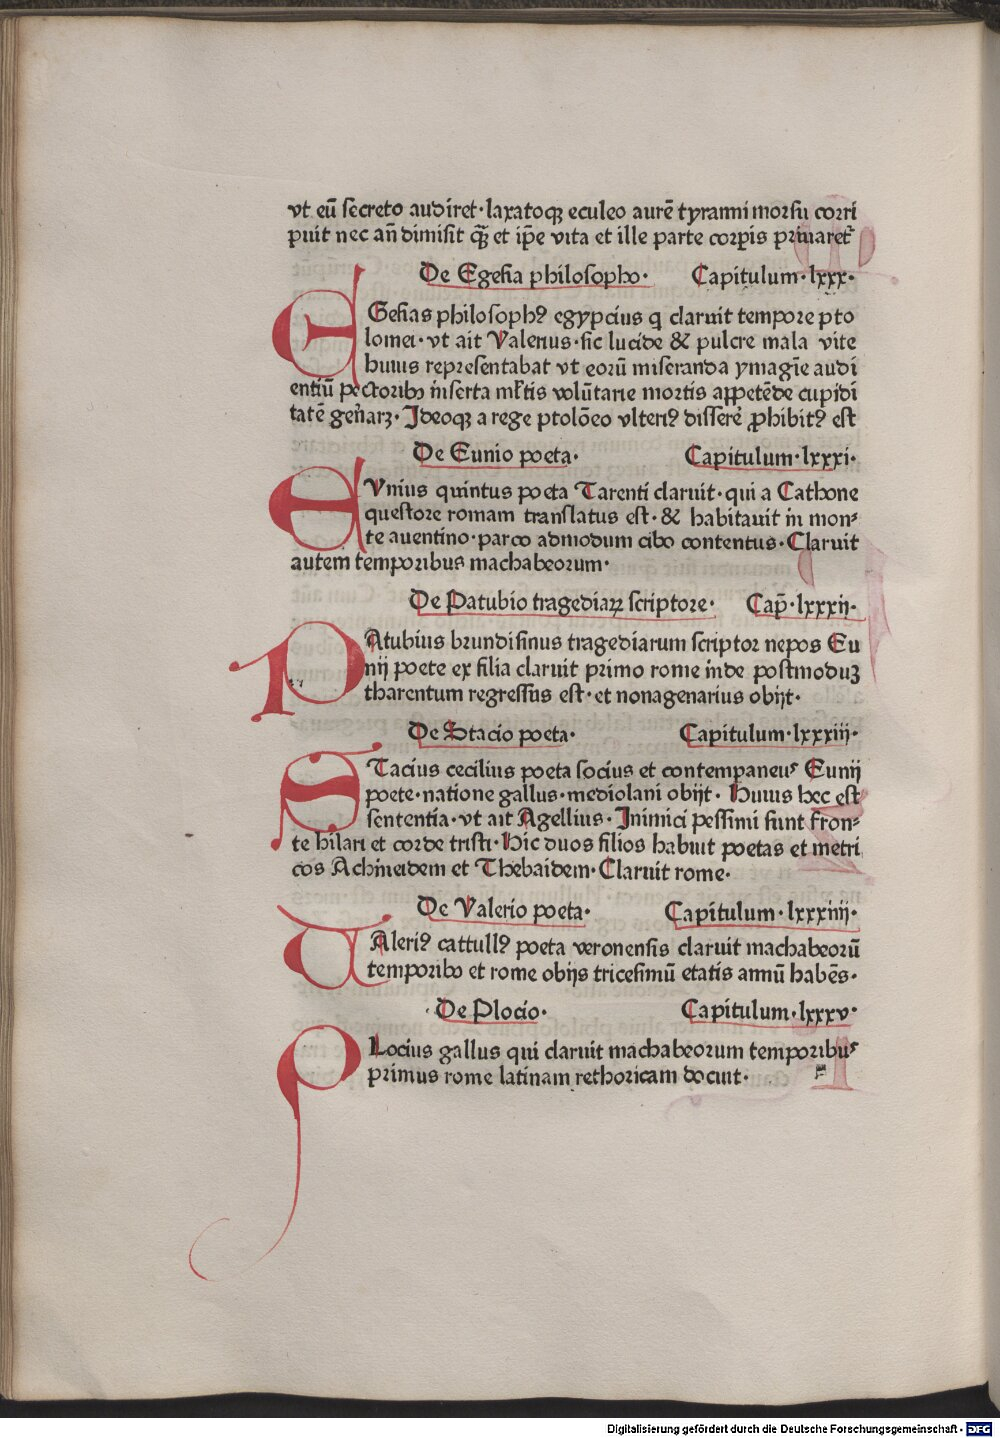 vt eū secreto audiret·laxatoqꝫ eculeo aurē tyranni morsu corri
puit nec an̄ dimisit qꝫ̄ et ip̄e vita et ille parte corp̄is priuaret᷑
De Egesia philosopho· Capitulum·lxxx·
EGesias philosophꝰ egypcius q claruit tempore pto
lomei·vt ait Valerius·sic lucide & pulcre mala vite
huius representabat vt eorū miseranda ymagīe audi
entiū pectoribꝫ inserta ml̄tis volūtarie mortis appetēde cupidi
tatē gen̄arꝫ·Ideoqꝫ a rege ptolōeo vlteriꝰ disserē ꝓhibitꝰ est
De Eunio poeta· Capitulum·lxxxi·
EVnius quintus poeta Tarenti claruit·qui a Cathone
questore romam translatus est·& habitauit in mon⸗
te auentino·parco admodum cibo contentus·Claruit
autem temporibus machabeorum·
De Patubio tragediaꝝ scriptore· Cap̄·lxxxij·
PAtubius brundisinus tragediarum scriptor nepos Eu
nij poete ex filia claruit primo rome inde postmoduꝫ
tharentum regressus est·et nonagenarius obijt·
De Stacio poeta· Capitulum·lxxxiij·
STacius cecilius poeta socius et contempaneus Eunij
poete·natione gallus·mediolani obijt· Huius hec est
sententia·vt ait Agellius·Inimici pessimi sunt fron⸗
te hilari et corde tristi·Hic duos filios habuit poetas et metri
cos Achineidem et Thebaidem·Claruit rome·
De Valerio poeta· Capitulum·lxxxiiij·
VAleriꝰ cattullꝰ poeta veronensis claruit machabeorū
temporibꝫ et rome obijs tricesimū etatis annū habēs·
De Plocio· Capitulum·lxxxv·
PLocius gallus qui claruit machabeorum temporibus
primus rome latinam rethoricam docuit·
Digitalisierung gefördert durch die Deutsche Forschungsgemeinschaft · DFG